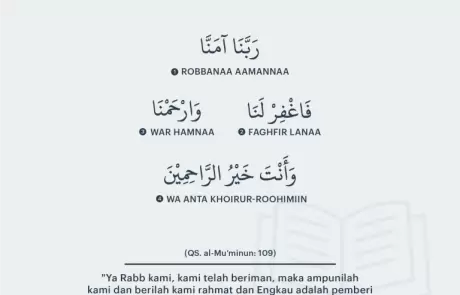 رَبَّنَا آمَنَّا
1 ROBBANAA AAMANNAA
فَاغْفِرْ لَنَا وَارْحَمْنَا
3 WAR HAMNAA 2 FAGHFIR LANAA
وَأَنْتَ خَيْرُ الرَّاحِمِيْنَ
4 WA ANTA KHOIRUR-ROOHIMIIN
(QS. al-Mu'minun: 109)
"Ya Rabb kami, kami telah beriman, maka ampunilah
kami dan berilah kami rahmat dan Engkau adalah pemberi